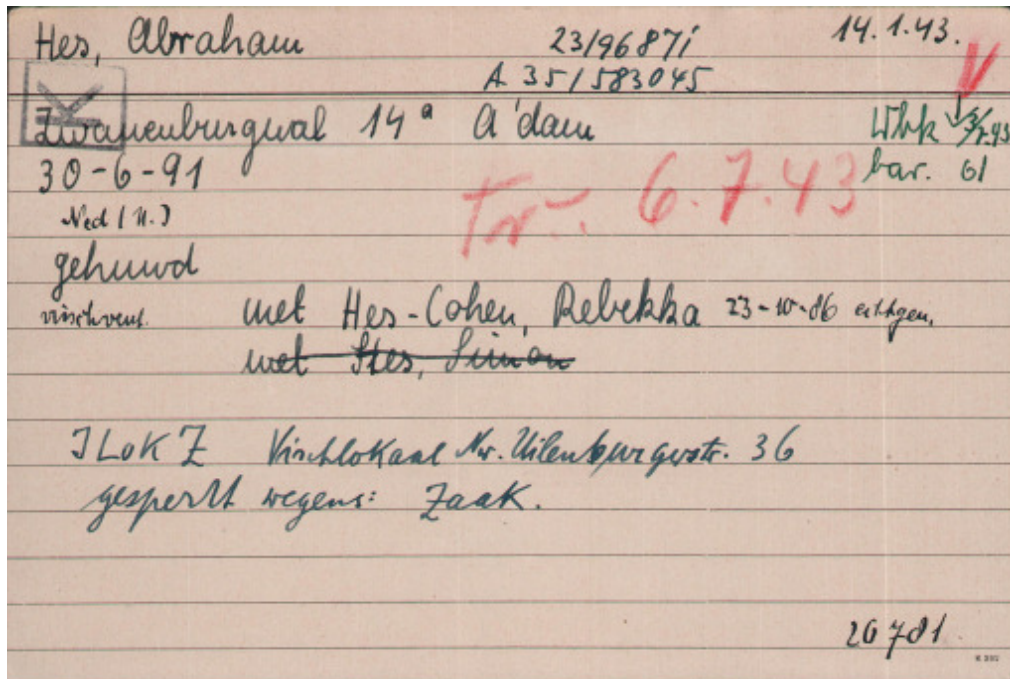 Hes, Abraham 23/96871 14.1.43. V
A 35/583045
K
Zwanenburgwal 14a A'dam Wbk 3/7.43
30-6-91 bar. 61
Ned (N.) Tr. 6.7.43
gehuwd
vischvent. met Hes-Cohen, Rebekka 23-10-86 echtgen.
met Hes, Simon
JLoKZ Vischlokaal Nw. Uilenburgerstr. 36
gesperrt wegens: Zaak.
26781
K 392